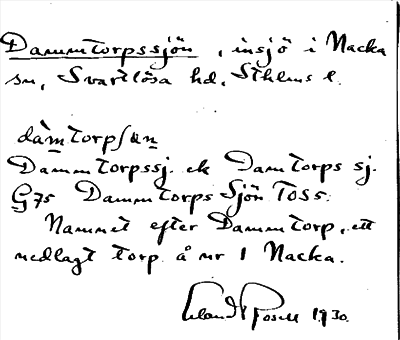 Dammtorpssjön, insjö i Nacka
sn, Svartlösa hd, Sthlms l.
dàmtorpsʃøn
Dammtorpssj. ek Damtorps sj.
G75 Dammtorps Sjön TOSS.
Namnet efter Dammtorp, ett
nedlagt torp å nr 1 Nacka.
Erland Rosell 1930.